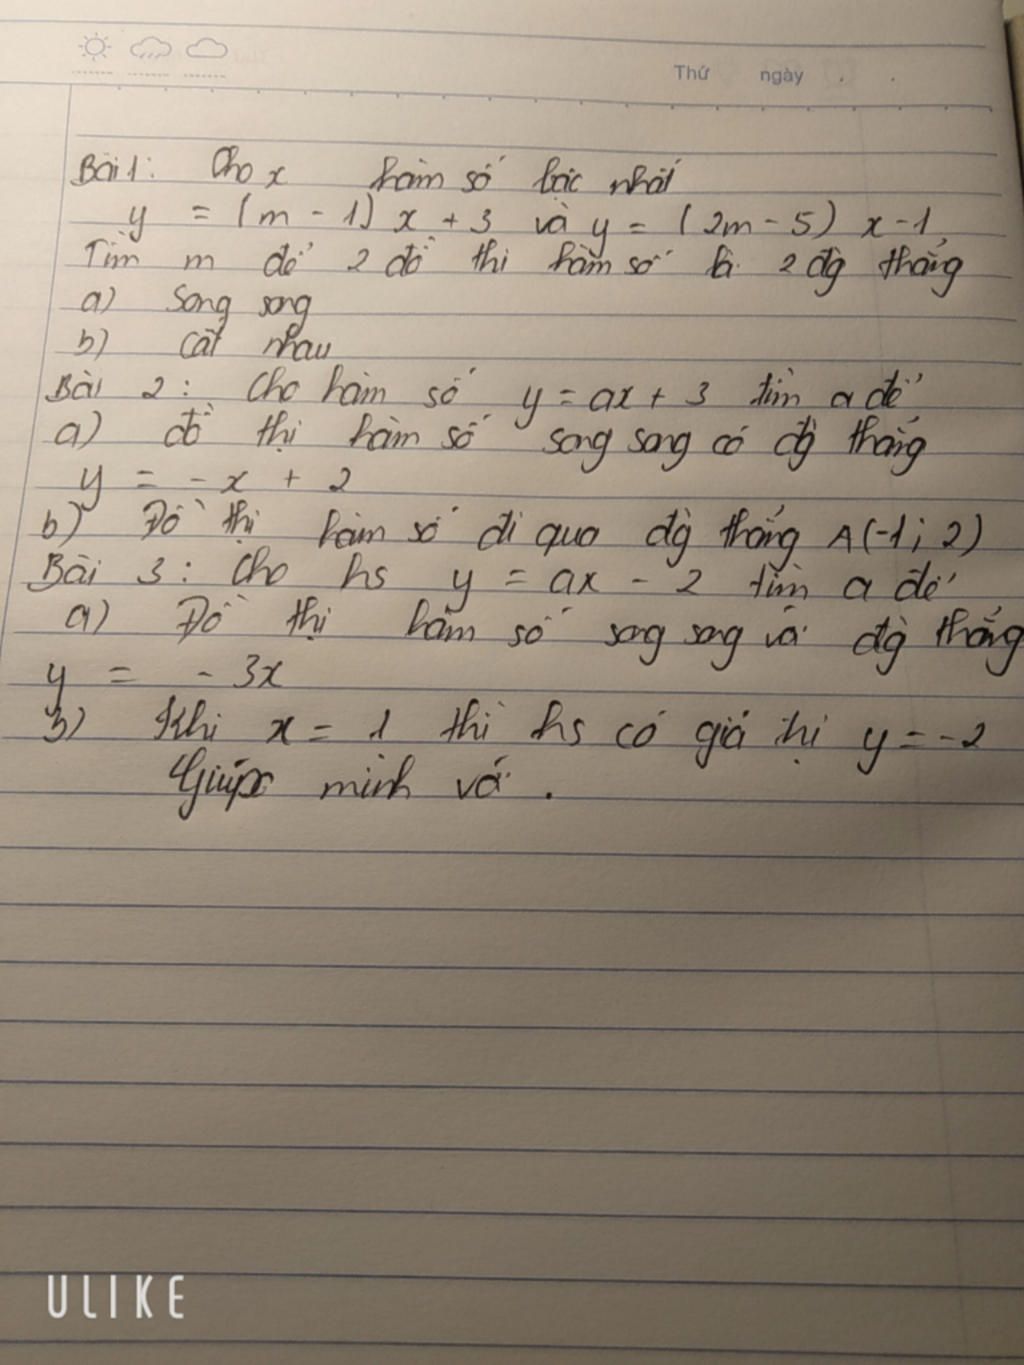 Thứ ngày
Bài 1: Cho x hàm số bậc nhất
y = (m - 1) x + 3 và y = (2m - 5) x - 1
Tìm m để 2 đồ thi hàm số là 2 đg thẳng
a) Song song
b) cắt nhau
Bài 2: Cho hàm số y = ax + 3 tìm a để
a) đồ thị hàm số song song có đg thẳng
y = - x + 2
b) Đồ thị hàm số đi qua đg thẳng A(-1; 2)
Bài 3: Cho hs y = ax - 2 tìm a để
a) Đồ thị hàm số song song với đg thẳng
y = - 3x
b) Khi x = 1 thì hs có giá trị y = -2
Giúp mình với.
ULIKE